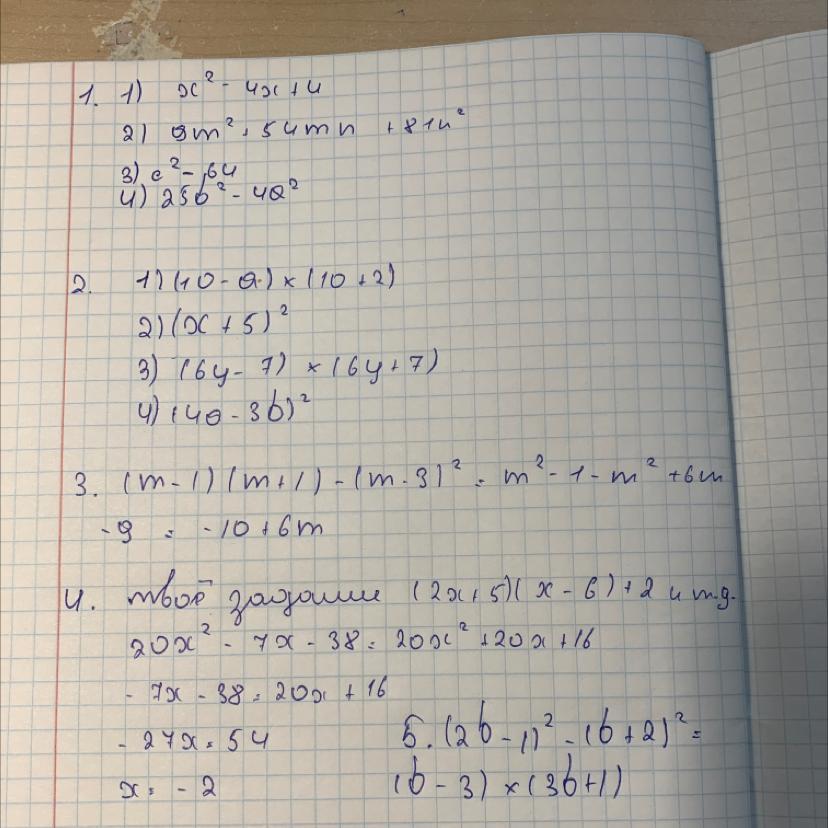 1. 1) x² - 4x + 4
2) 9m² + 54mn + 81n²
3) c² - 64
4) 25b² - 4a²
2. 1) (10 - a) × (10 + 2)
2) (x + 5)²
3) (6y - 7) × (6y + 7)
4) (4a - 3b)²
3. (m - 1) (m + 1) - (m - 3)² = m² - 1 - m² + 6m
- 9 = - 10 + 6m
4. твоё задание (2x + 5)(x - 6) + 2 и т.д.
20x² - 7x - 38 = 20x² + 20x + 16
- 7x - 38 = 20x + 16
- 27x = 54
x = - 2
5. (2b - 1)² - (b + 2)² =
(b - 3) × (3b + 1)